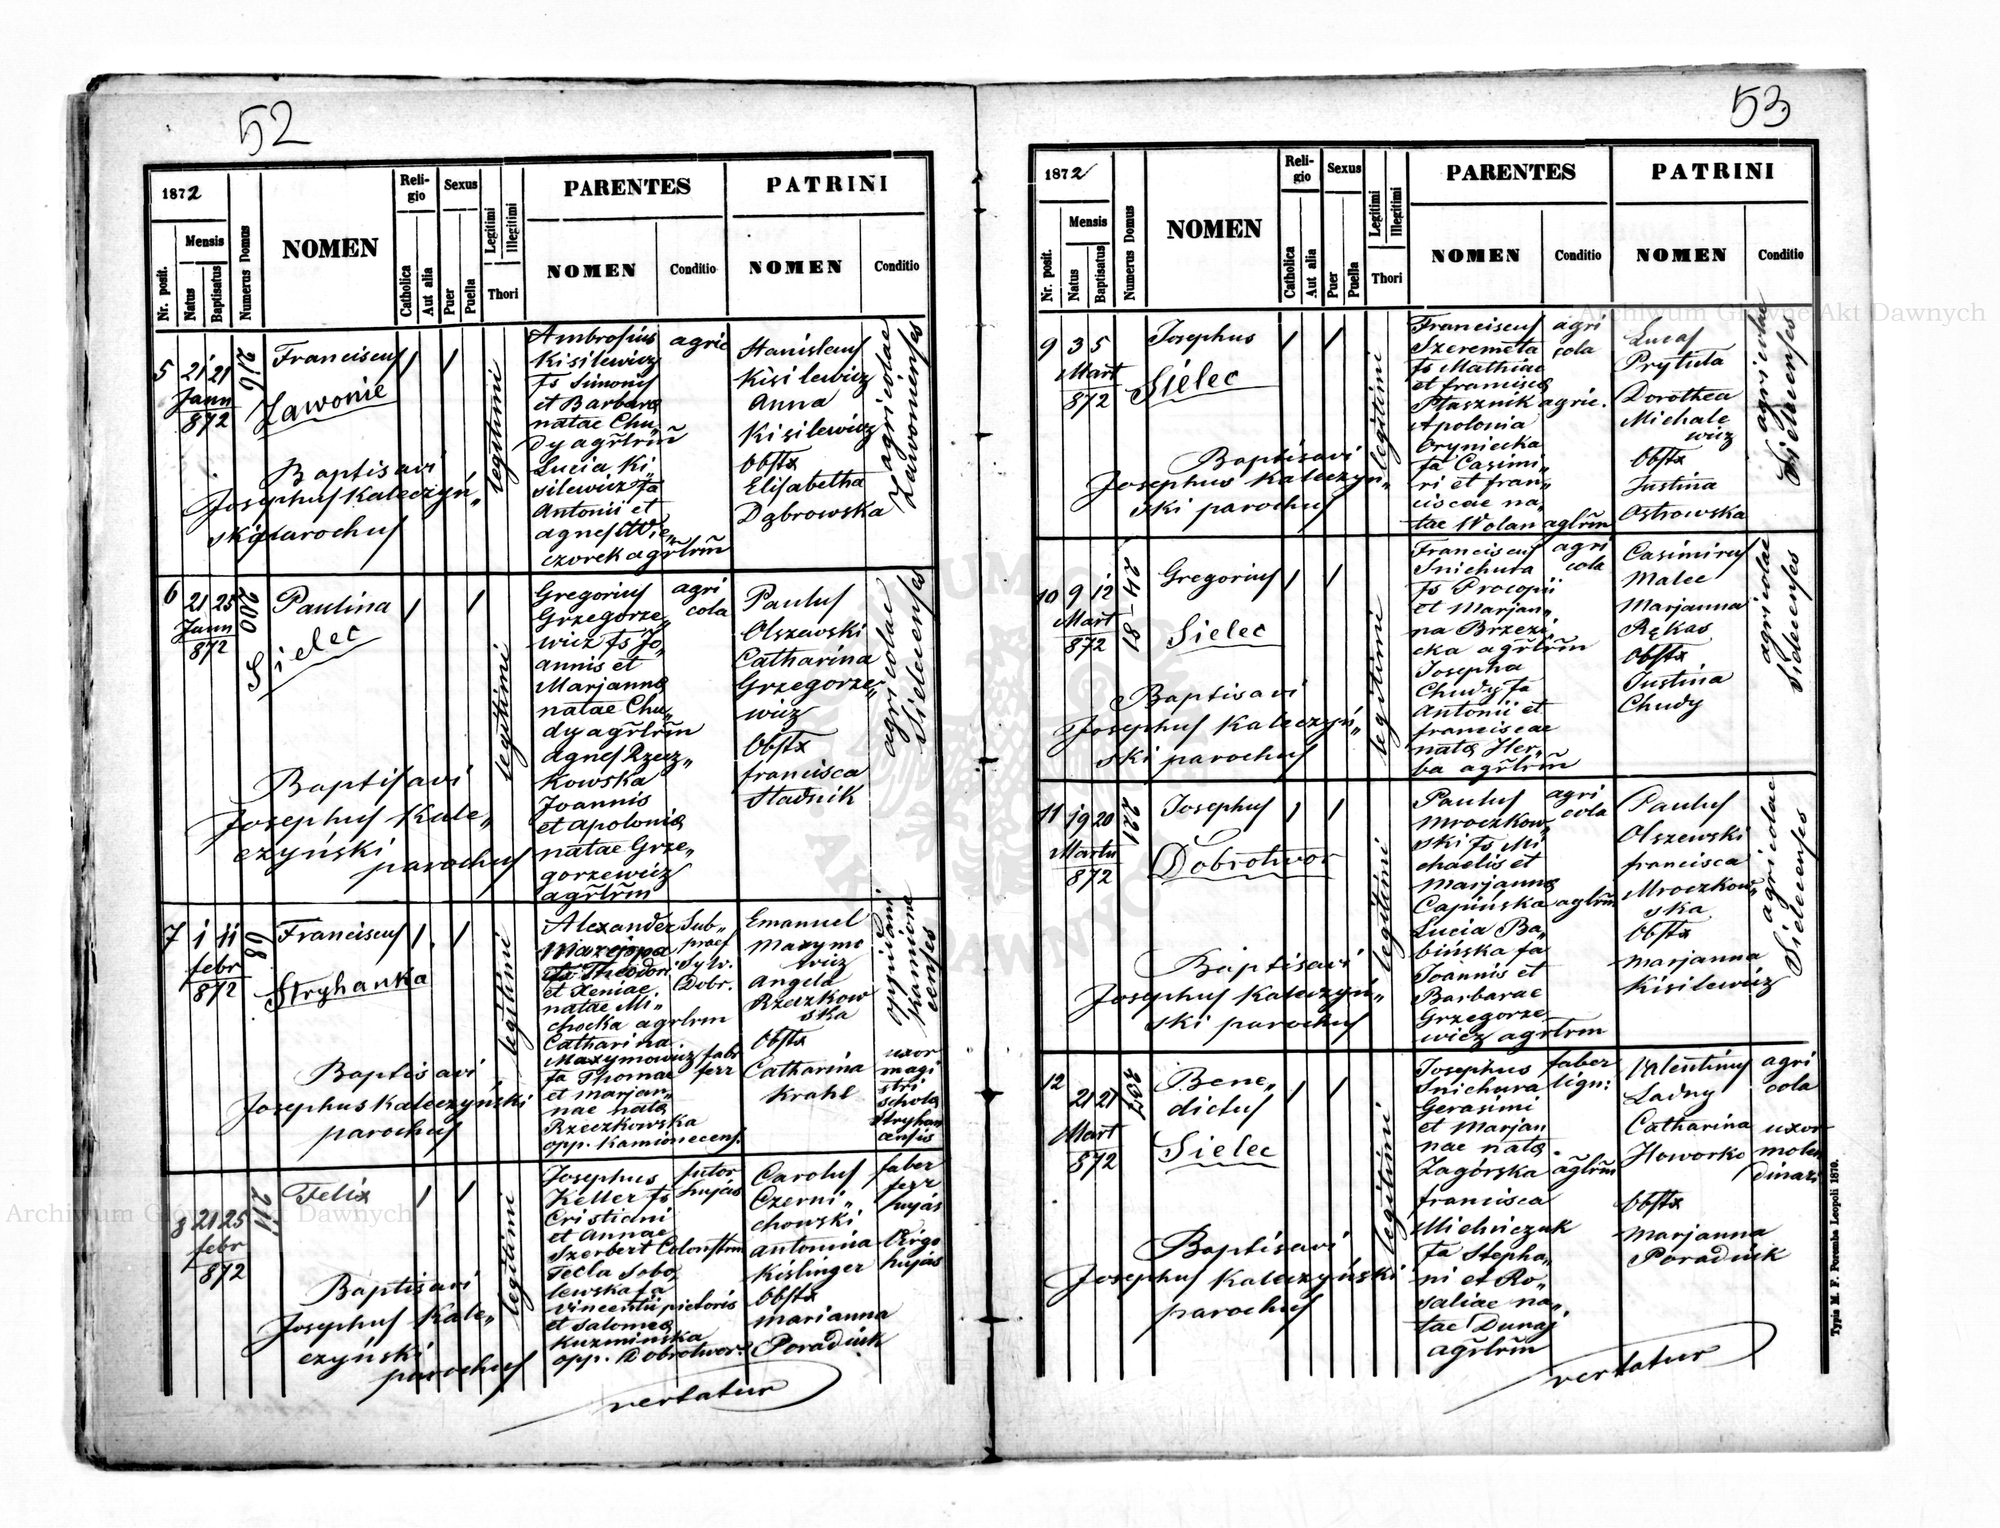 52
1872
Nr. posit.
Mensis
Natus
Baptisatus
Numerus Domus
NOMEN
Religio
Catholica
Aut alia
Sexus
Puer
Puella
Legitimi
Illegitimi
Thori
PARENTES
NOMEN
Conditio
PATRINI
NOMEN
Conditio
5
21 21
Jann
872
216
Franciscus
Zawonie
Baptisavi
Josephus Kaleczyń„
ski parochus
legitimi
Ambrosius
Kisilewicz
fs Simonis
et Barbara
natae Chu„
dy agrlrm
Lucia Ki„
silewicz fa
Antonii et
agnes Wie„
czorek agrlrm
agric
Stanislaus
Kisilewicz
Anna
Kisilewicz
Obstx
Elisabetha
Dąbrowska
agricolae
Zawonienses
6
21 25
Jann
872
200
Paulina
Sielec
Baptisavi
Josephus Kale„
czyński
parochus
legitimi
Gregorius
Grzegorze„
wicz fs Jo„
annis et
Marjanna
natae Chu„
dy agrlrm
agnes Rzecz„
kowska
Joannis
et apolonia
natae Grze„
gorzewicz
agrlrm
agri
cola
Paulus
Olszewski
Catharina
Grzegorze„
wicz
Obstx
francisca
Stadnik
agricolae
Sielecenses
7
1 11
febr
872
89
Franciscus
Stryhanka
Baptisavi
Josephus Kaleczyński
parochus
legitimi
Alexander
Mazeppa
Theodori
et Xeniae
natae Mi„
chocka agrlrm
Catharina
Maxymowicz
fa Thomae
et marjan„
nae nata
Rzeczkowska
opp. Kamionecens.
Sub„
praef
Sylv.
Dobr.
fabr
ferr
Emanuel
Maxymo
wicz
Angela
Rzeczkow
ska
Obstx
Catharina
Krahl
oppidani
Kamione
censes
uxor
magi
stri
schola
Stryhan
censis
8
21 25
febr
872
211
Felix
Baptisavi
Josephus Kale„
czyński
parochus
legitimi
Josephus
Keller fs
Cristiani
et Annae
Szerbert Colonstrm
Tecla Sobo
lewska fa
Vincentii pictoris
et Salomea
Kuzminska
opp. Dobrotwor.
sutor
hujas
Carolus
Czerni„
chowski
antonina
Kislinger
Obstx
marianna
Poradiuk
faber
ferr
hujas
Virgo
hujas
vertatur
53
1872
Nr. posit.
Mensis
Natus
Baptisatus
Numerus Domus
NOMEN
Religio
Catholica
Aut alia
Sexus
Puer
Puella
Legitimi
Illegitimi
Thori
PARENTES
NOMEN
Conditio
PATRINI
NOMEN
Conditio
9
3 5
Mart
872
Josephus
Sielec
Baptisavi
Josephus Kaleczyń„
ski parochus
legitimi
Franciscus
Szeremeta
fs Mathiae
et francisca
Ptasznik agric.
Apolonia
Oryniecka
fa Casimi„
ri et fran„
ciscae na„
tae Wolan agrlrm
agri
cola
Lucas
Prytula
Dorothea
Michale
wicz
Obstx
Justina
Ostrowska
agricolae
Sielecenses
10
9 12
Mart
872
24–81
Gregorius
Sielec
Baptisavi
Josephus Kaleczyń„
ski parochus
legitimi
Franciscus
Snichura
fs Procopii
et Marjan„
na Brzezi
cka agrlrm
Josepha
Chudy fa
Antonii et
franciscae
nata Her„
ba agrlrm
agri
cola
Casimirus
Malec
Marjanna
Rękas
Obstx
Justina
Chudy
agricolae
Sielecenses
11
19 20
Marti
872
221
Josephus
Dobrotwor
Baptisavi
Josephus Kaleczyń„
ski parochus
legitimi
Paulus
Mroczkow„
ski fs Mi
chaelis et
Marjanna
Capińska agrlrm
Lucia Ba„
bińska fa
Joannis et
Barbarae
Grzegorze
wicz agrlrm
agri
cola
Paulus
Olszewski
francisca
Mroczkow„
ska
Obstx
marjanna
Kisilewicz
agricolae
Sielecenses
12
21 21
Mart
872
237
Bene„
dictus
Sielec
Baptisavi
Josephus Kaleczyński
parochus
legitimi
Josephus
Snichura
Gerasimi
et Marjan
nae nata
Zagórska agrlrm
francisca
Mielniczuk
fa Stepha„
ni et Ro„
saliae na„
tae Dunaj
agrlrm
faber
lign:
Valentinus
Ladny
Catharina
Howorko
Obstx
Marjanna
Poradiuk
agri
cola
uxor
molen
dinari
vertatur
Typis M. F. Poremba Leopoli 1870.
Archiwum Główne Akt Dawnych
Archiwum Główne Akt Dawnych